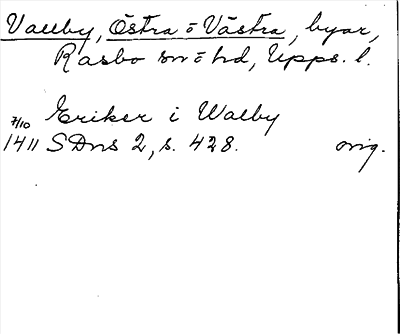 Vallby, Östra o Västra, byar,
Rasbo sn o hd, Upps. l.
7/10 Eriker i Walby
1411 SDns 2, s. 428. orig.